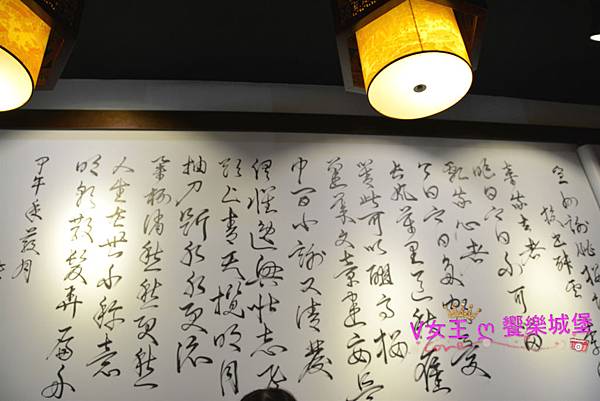 宣州謝朓樓
校書叔雲
棄我去者
昨日之日不可留
亂我心者
今日之日多煩憂
長風萬里送秋雁
對此可以酣高樓
蓬萊文章建安骨
中間小謝又清發
俱懷逸興壯思飛
欲上青天攬明月
抽刀斷水水更流
舉杯消愁愁更愁
人生在世不稱意
明朝散髮弄扁舟
甲午年葭月
V女王 ღ 饗樂城堡